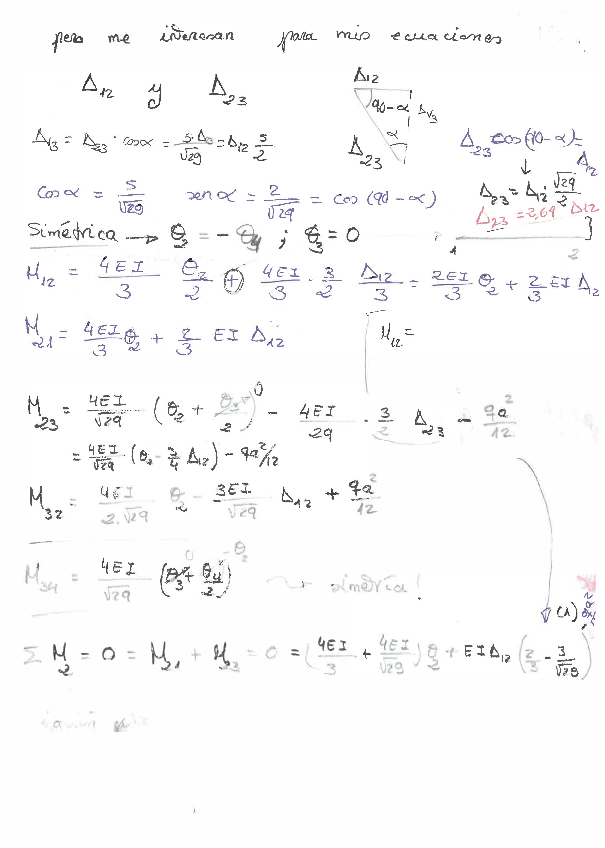 pero me interesan para mis ecuaciones
Δ12 y Δ23
Δ12
90-α Δv3
α
Δ23
Δv3 = Δ23 · cosα = = Δ12 5/2
Δ23 cos(90-α) = Δ12
↓
Δ23 = Δ12 · √29/2
Δ23 = 2,69 Δ12
cosα = 5/√29 senα = 2/√29 = cos(90-α)
Simétrica → θ2 = -θ4 ; θ3 = 0
1 2
M12 = 4EI/3 θ2/2 + 4EI/3 · 3/2 Δ12/3 = 2EI/3 θ2 + 2/3 EI Δ12
M21 = 4EI/3 θ2 + 2/3 EI Δ12
M12 =
M23 = 4EI/√29 (θ2 + θ3/2)0 - 4EI/29 · 3/2 Δ23 - qa²/12
= 4EI/√29 · (θ2 - 3/4 Δ12) - qa²/12
M32 = 4EI/2·√29 θ2 - 3EI/√29 Δ12 + qa²/12
M34 = 4EI/√29 (θ3 0 + θ4/2) -θ2 → simetría!
(1)
Σ M2 = 0 = M21 + M23 = 0 = (4EI/3 + 4EI/√29) θ2 + EIΔ12 (2/3 - 3/√29)